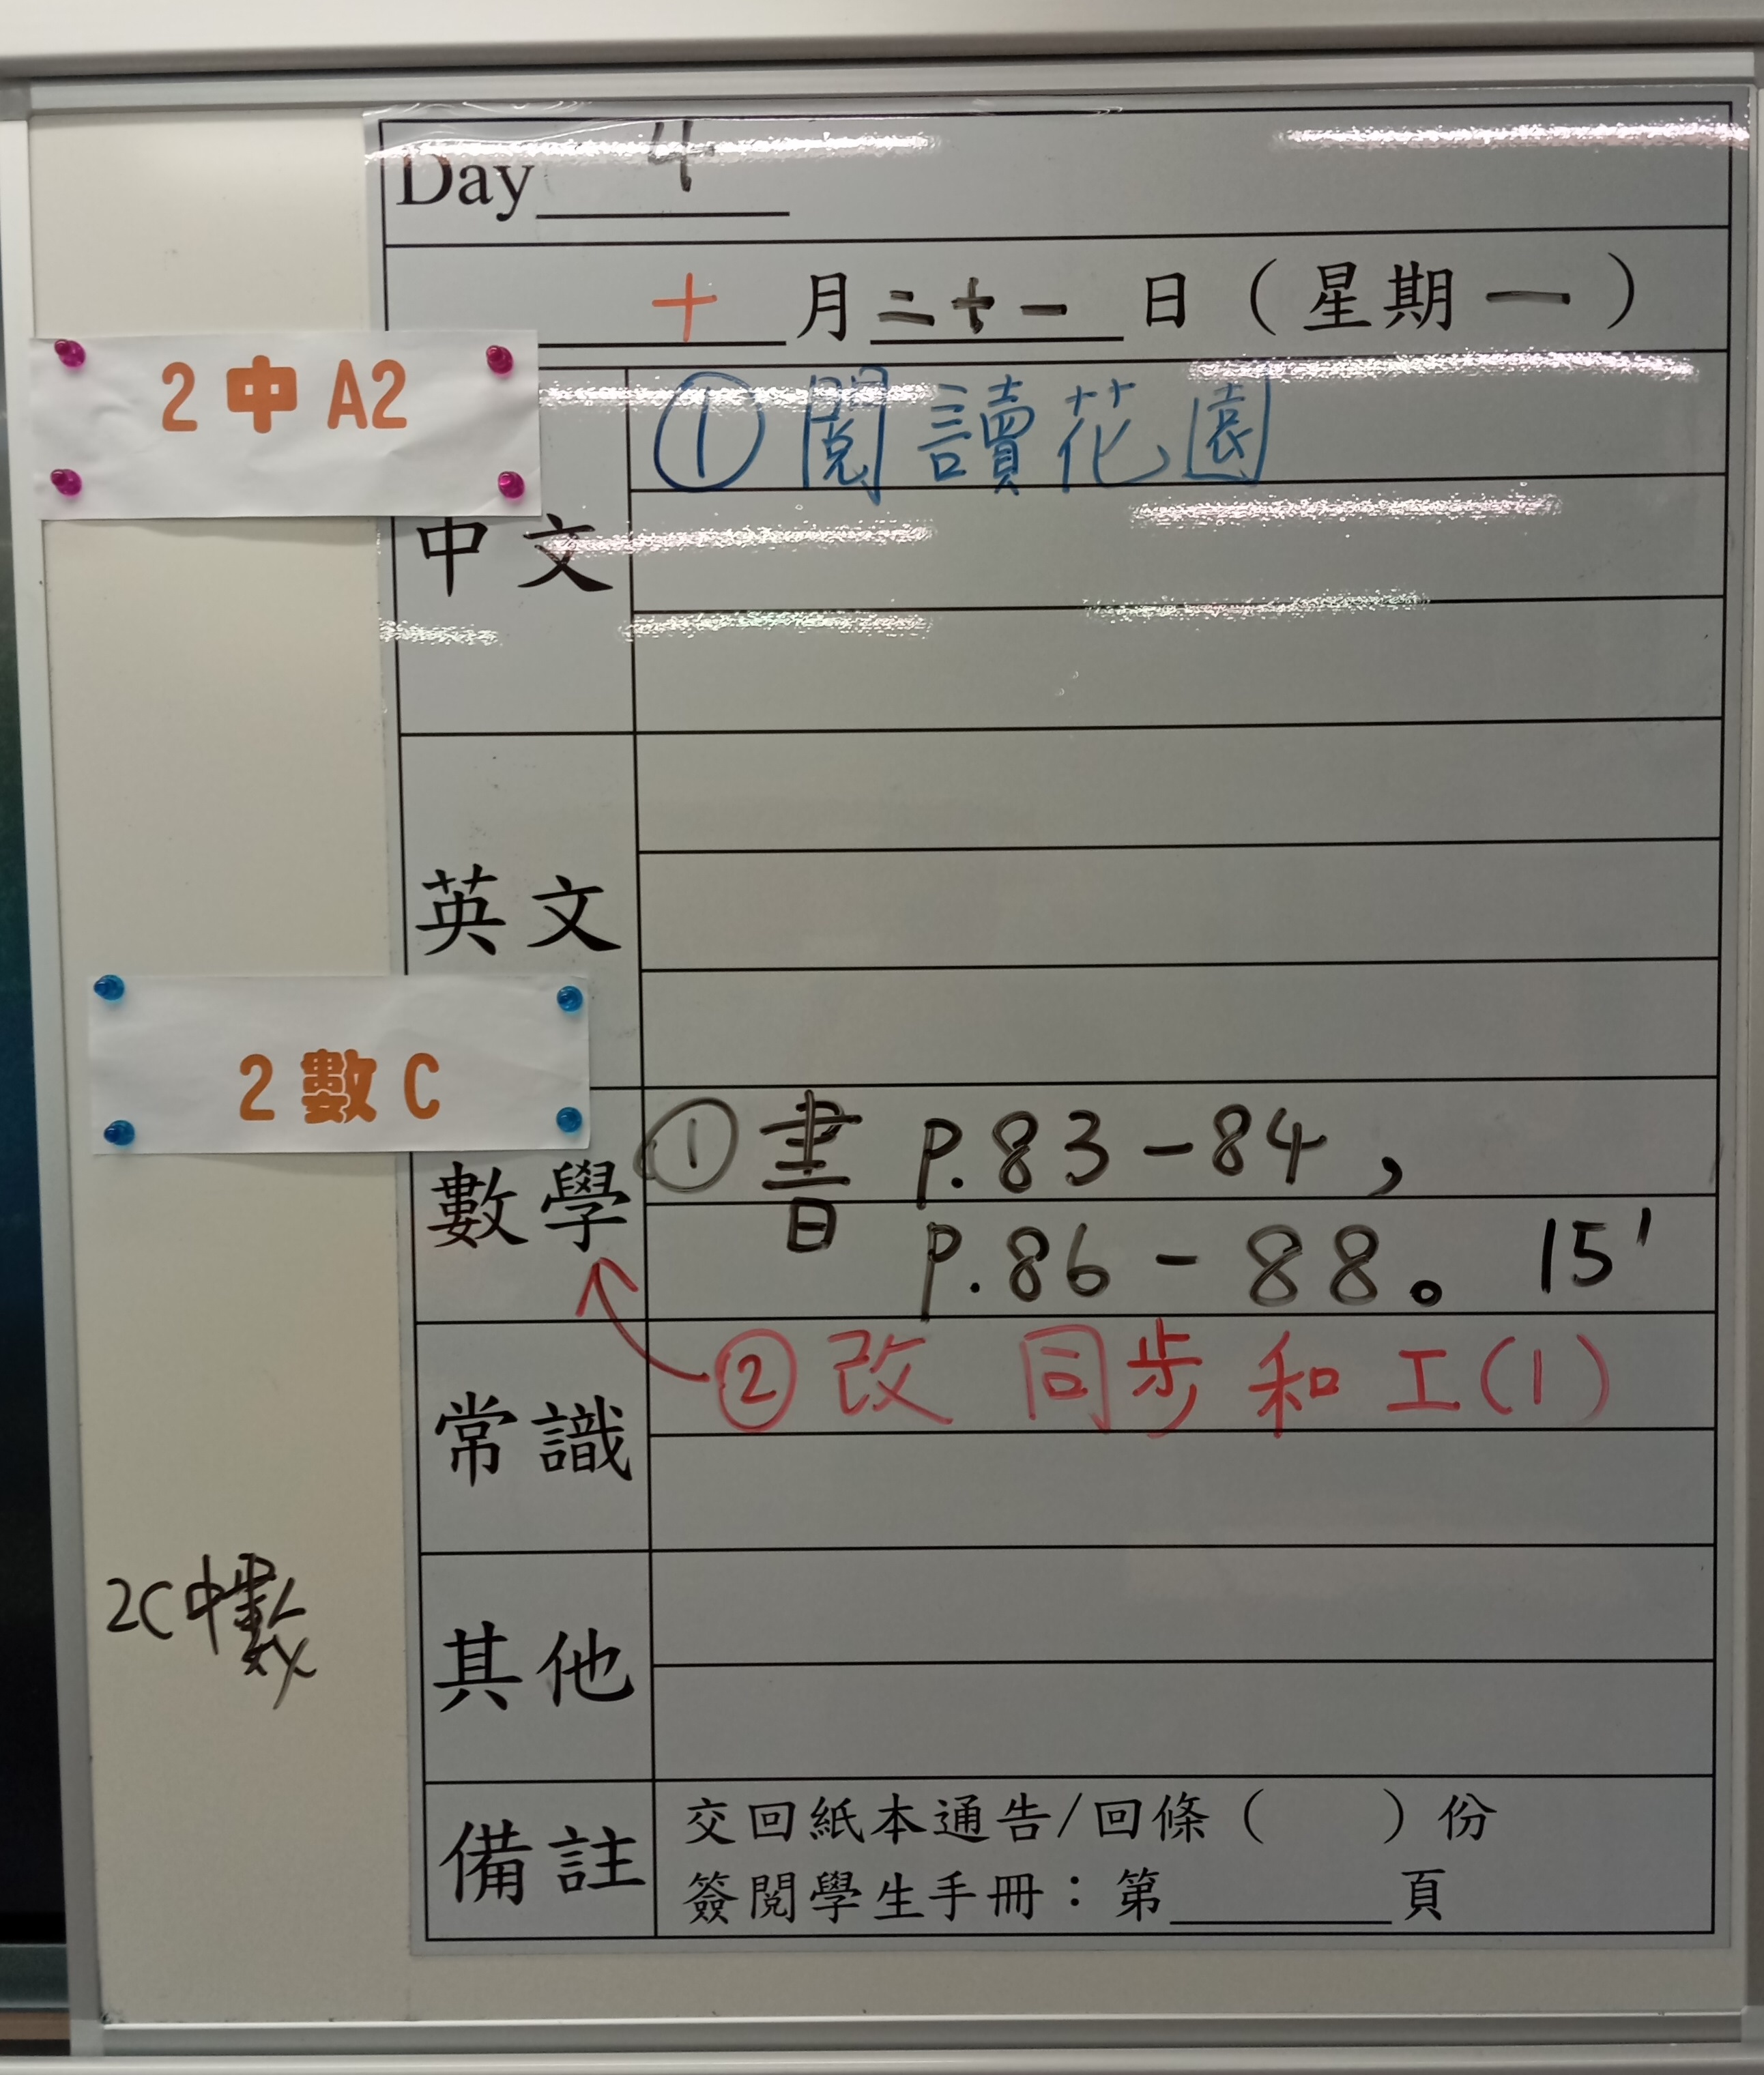 Day 4
十月二十一日（星期一）
2 中 A2
中文
①閱讀花園
英文
2 數 C
數學
①書 p.83-84，
p.86-88。 15'
②改 同步和工(1)
常識
2C中數
其他
備註
交回紙本通告/回條（ ）份
簽閱學生手冊：第______頁